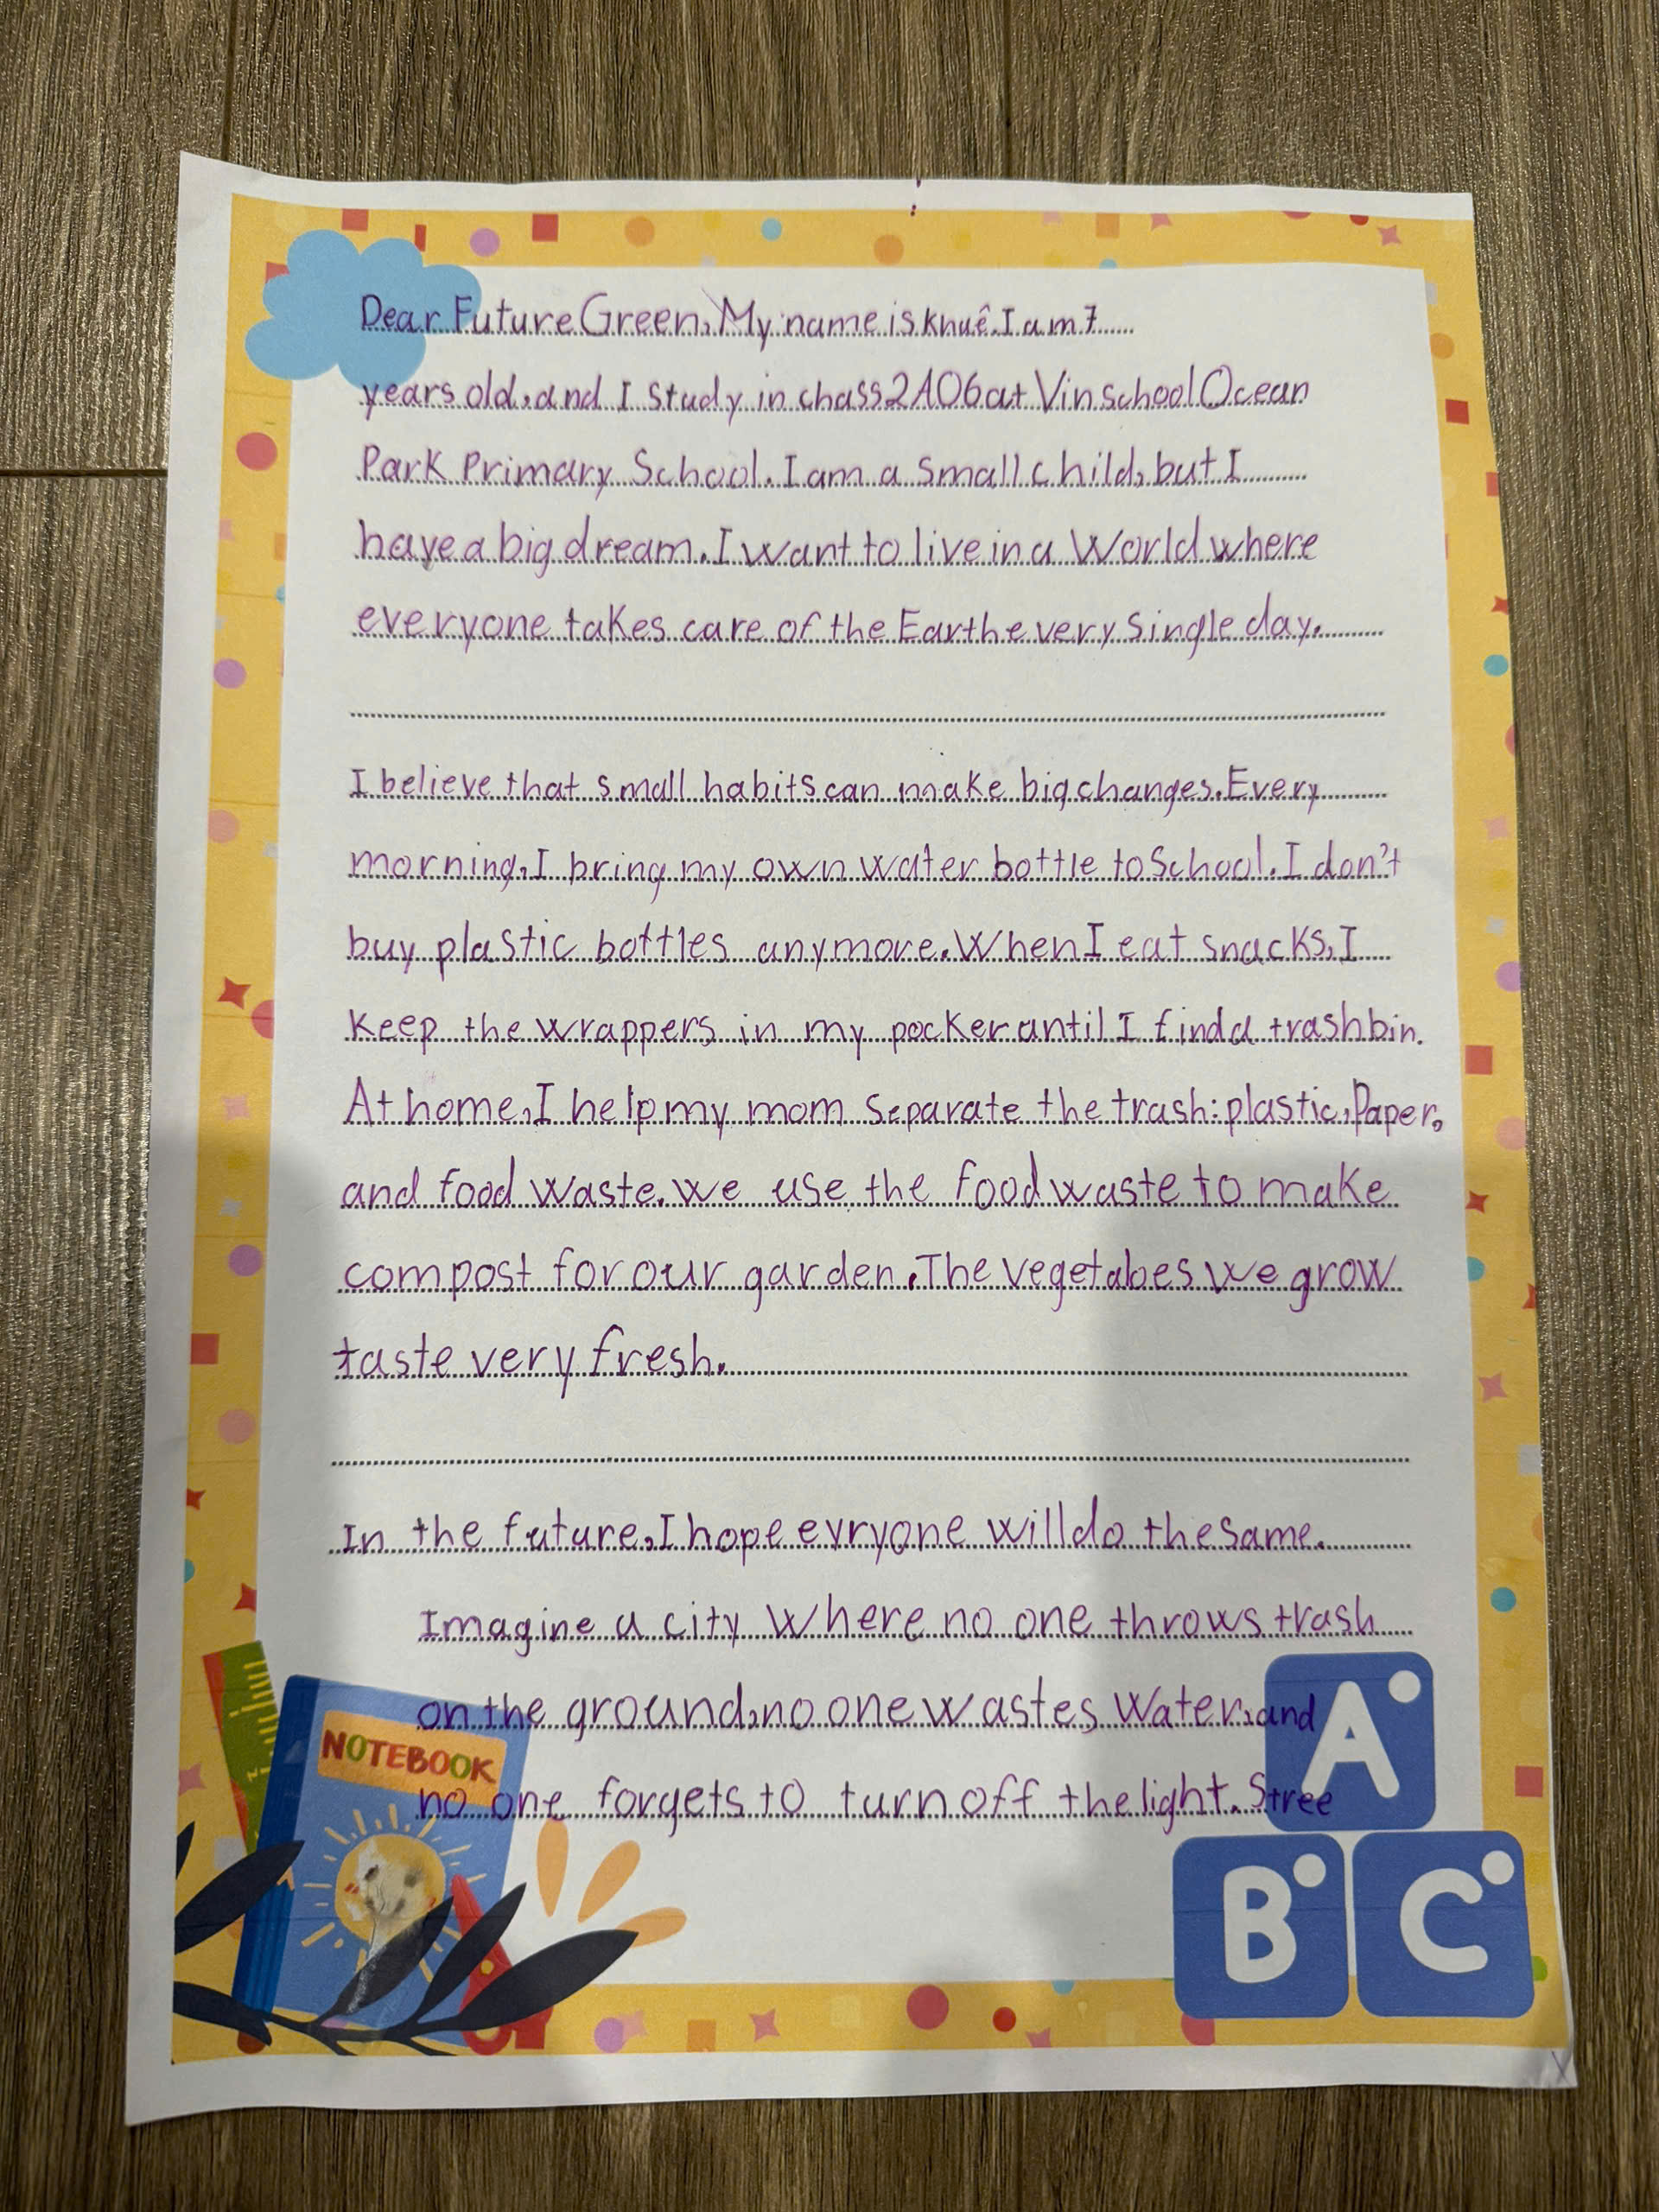 Dear Future Green, My name is Khuê. I am 7
years old, and I study in chass 2A06 at Vinschool Ocean
Park Primary School. I am a small child, but I
have a big dream. I want to live in a World where
everyone takes care of the Earth every single day.
I believe that small habits can make big changes. Every
morning, I bring my own water bottle to School. I don't
buy plastic bottles anymore. When I eat snacks, I
keep the wrappers in my pocker antil I find a trash bin.
At home, I help my mom separate the trash: plastic, Paper,
and food waste. we use the food waste to make
compost for our garden. The vegetabes we grow
taste very fresh.
In the future, I hope evryone will do the same.
Imagine a city where no one throws trash
on the ground, no one wastes Water, and
no one forgets to turn off the light. Stree
NOTEBOOK
A
B C